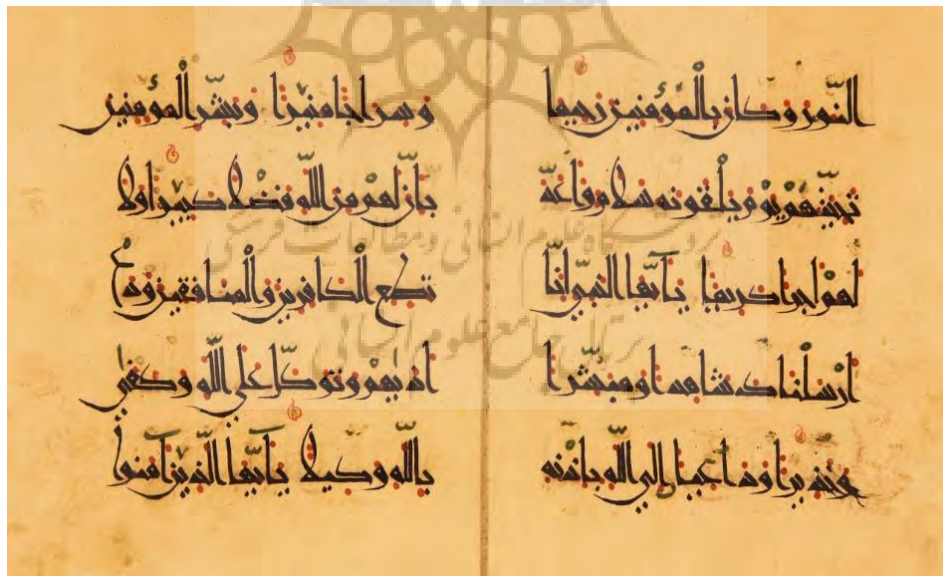 النّور وكان بالمؤمنين رحيما
تحيّتهم يوم يلقونه سلام واعدّ
لهم اجرا كريما يآيّها النبي انّا
ارسلناك شاهدا ومبشّرا
ونذيرا وداعيا الى اللّه باذنه
وسراجا منيرا وبشّر المؤمنين
بانّ لهم من اللّه فضلا كبيرا ولا
تطع الكافرين والمنافقين ودع
اذيهم وتوكّل على اللّه وكفى
باللّه وكيلا يآيّها الّذين آمنوا
پژوهشگاه علوم انسانی و مطالعات فرهنگی
پرتال جامع علوم انسانی